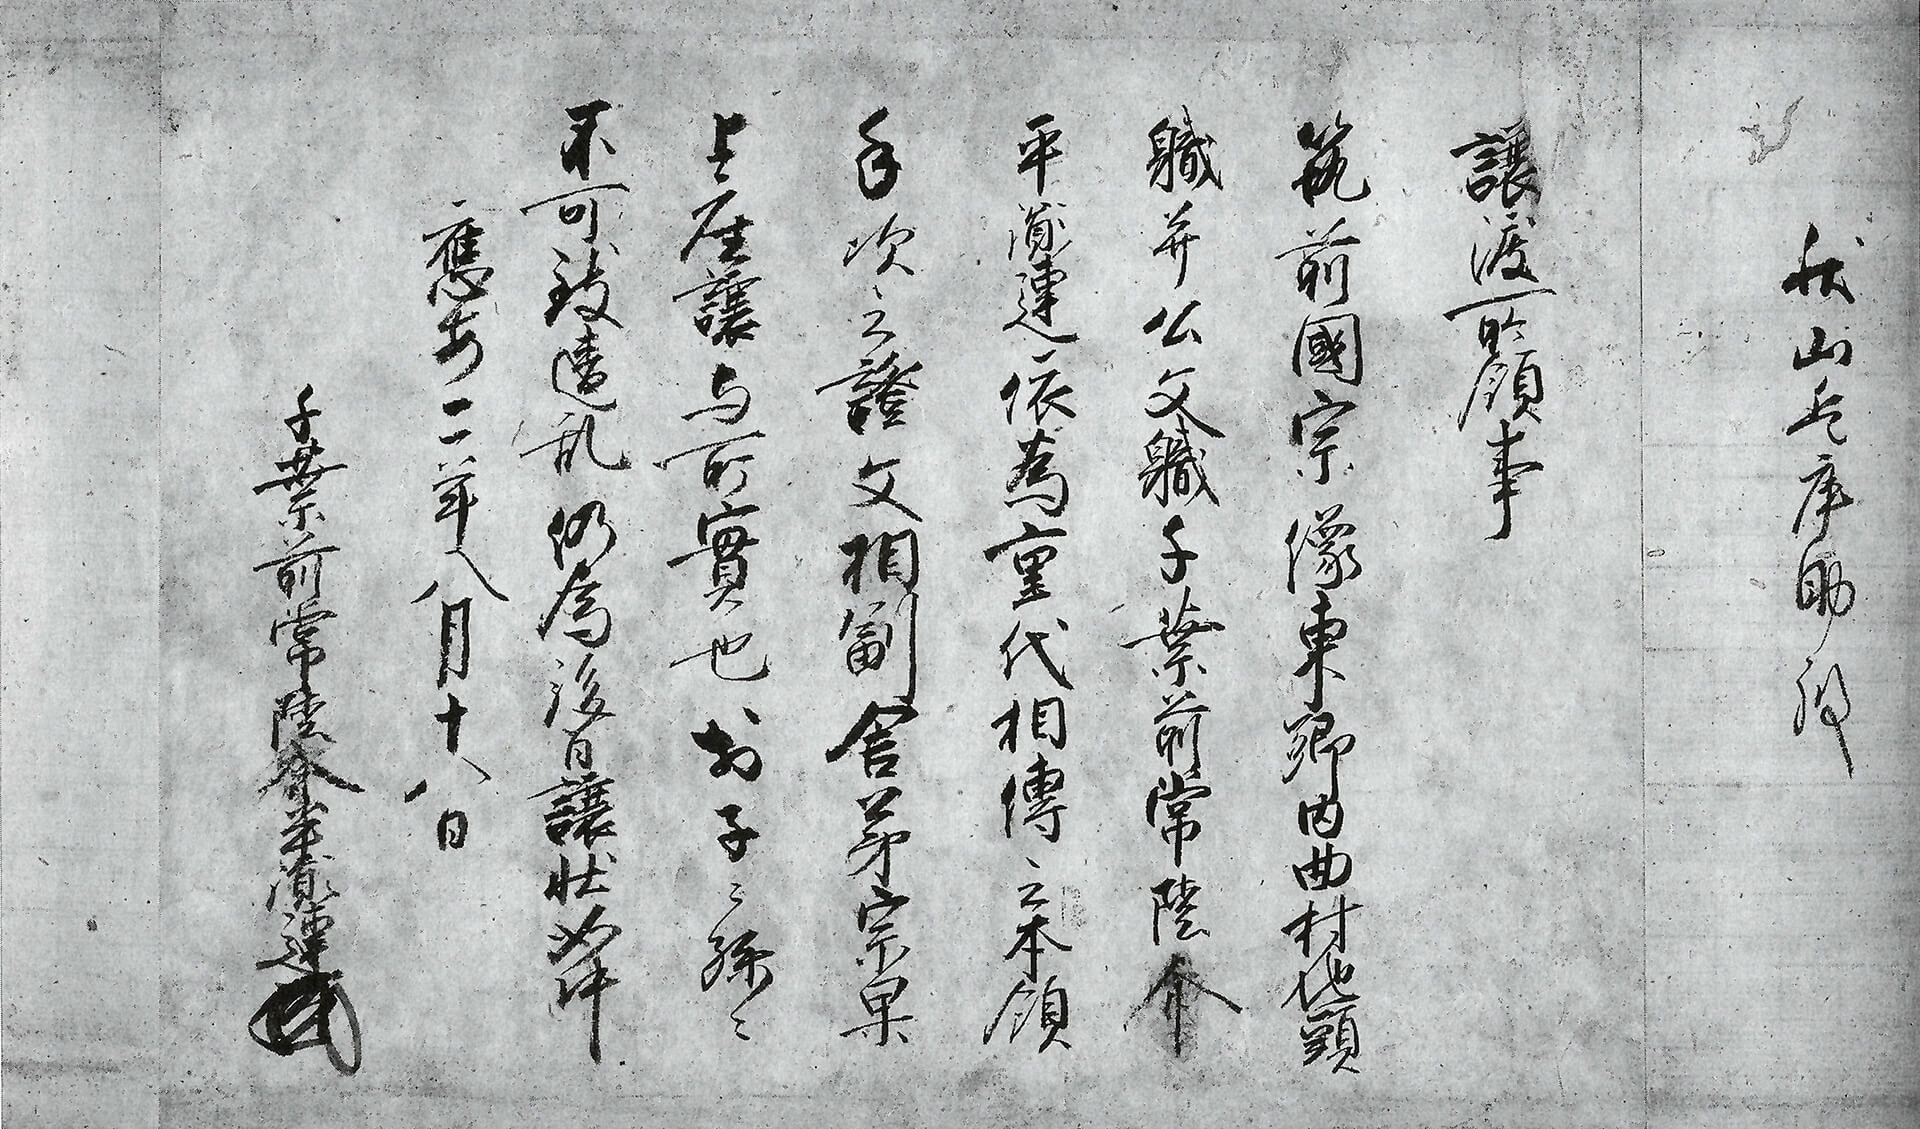 秋山兵庫助殿
讓渡所領事
筑前國宗像東郷内曲村地頭
職并公文職千葉前常陸介
平胤連依為重代相傳之本領
手次之證文相副舎弟宗果
上座讓与所實也於子々孫々
不可致違乱仍為後日讓状如件
應安二年八月十八日
千葉前常陸介平胤連